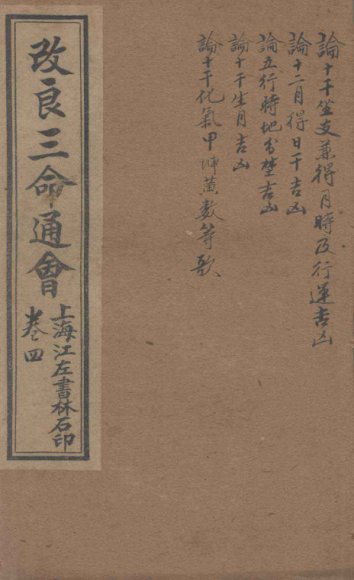 論十干坐支兼得月時及行運吉凶
論十二月得日干吉凶
論五行時地分埜吉凶
論十干生月吉凶
論十干化氣甲
改良三命通會
卷四
上海江左書林石印